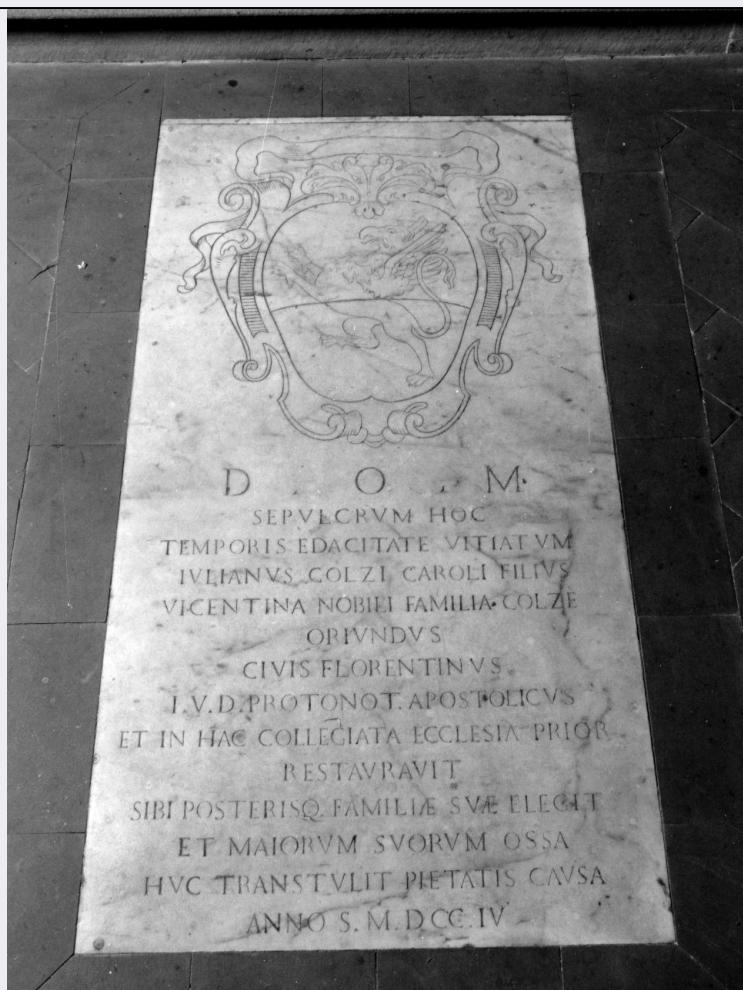 D. O. M.
SEPVLCRVM HOC
TEMPORIS EDACITATE VITIATVM
IVLIANVS COLZI CAROLI FILIVS
VICENTINA NOBILI FAMILIA COLZE
ORIVNDVS
CIVIS FLORENTINVS
I.V.D. PROTONOT. APOSTOLICVS
ET IN HAC COLLEGIATA ECCLESIA PRIOR
RESTAVRAVIT
SIBI POSTERISQ. FAMILIÆ SVÆ ELEGIT
ET MAIORVM SVORVM OSSA
HVC TRANSTVLIT PIETATIS CAVSA
ANNO S. M.DCC.IV